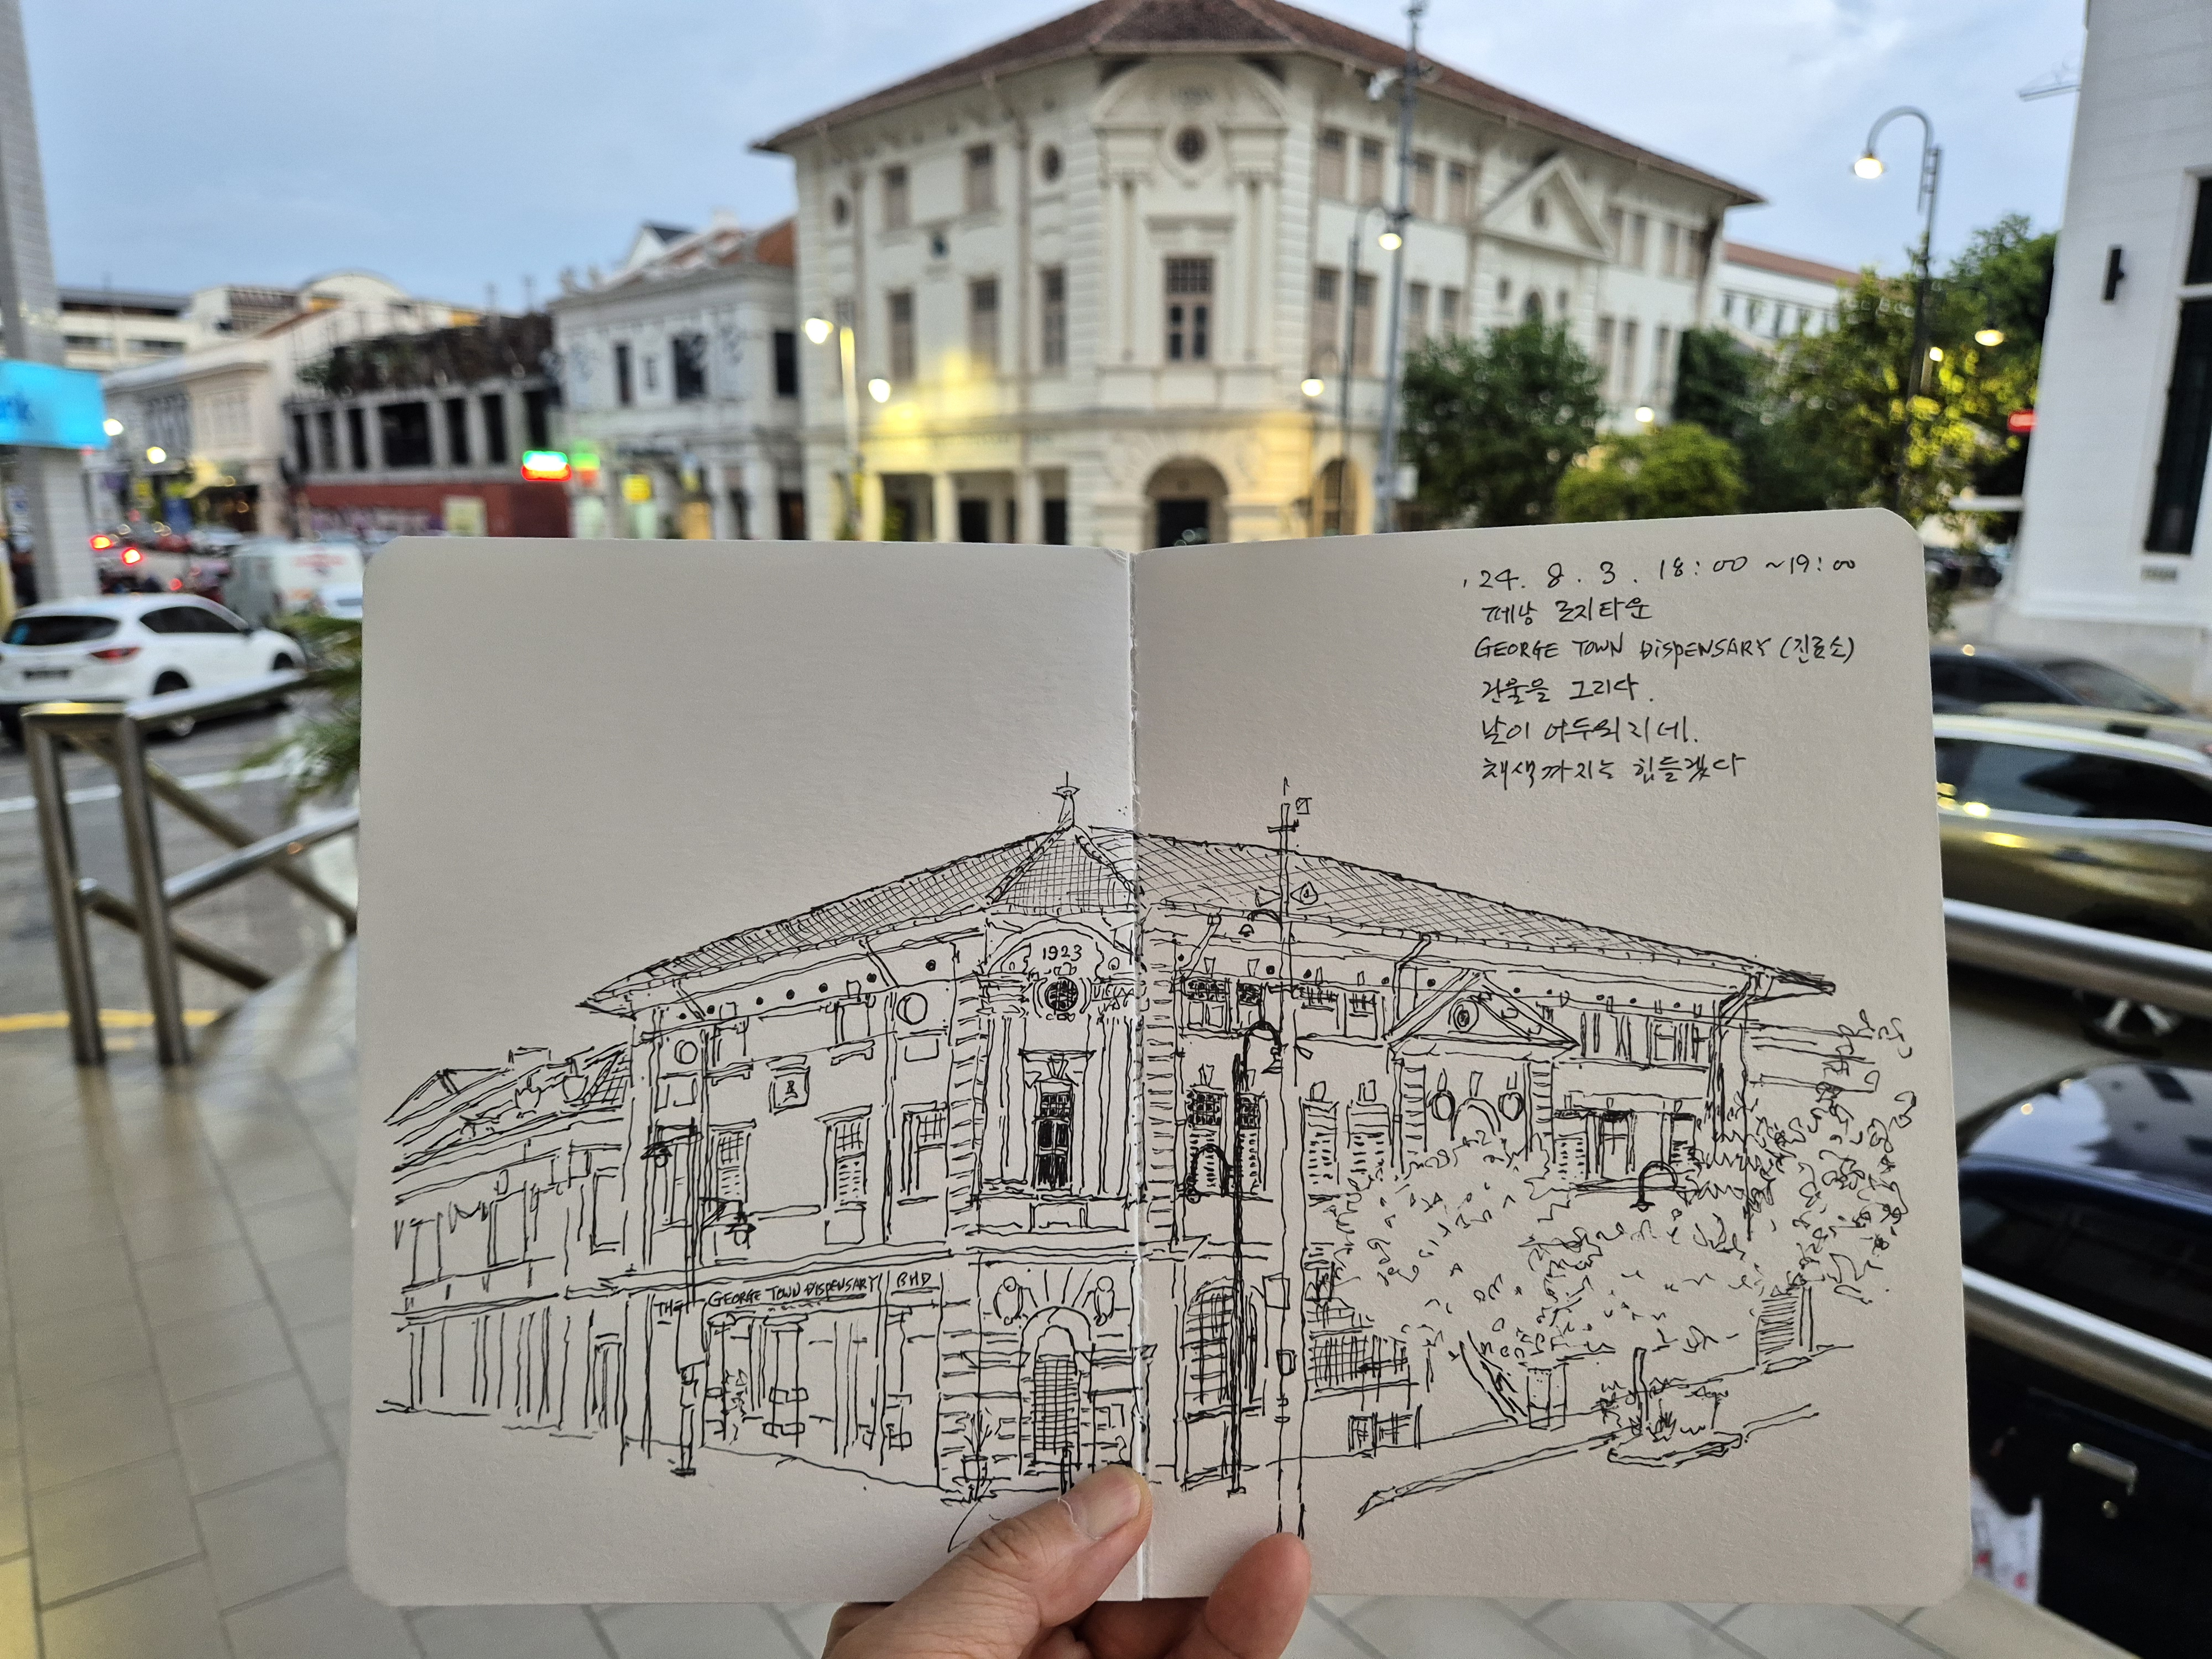 '24. 8. 3. 18:00 ~19:00
페낭 조지타운
GEORGE TOWN DISPENSARY (진료소)
건물을 그리다.
날이 어두워지네.
채색까지는 힘들겠다
1923
THE GEORGE TOWN DISPENSARY BHD